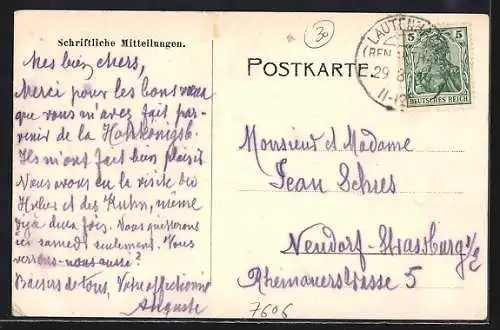 Schriftliche Mitteilungen.
30
POSTKARTE.
LAUTEN
29 8
11-12
5 5
DEUTSCHES REICH
Mes bien chers,
Merci pour les bons vœux
que vous m'avez fait par-
venir de la Hohkönigsb.
Ils m'ont fait bien plaisir.
Nous avons eu la visite des
et des Kuhn, même
déjà deux fois. Nous quitterons
ici samedi seulement. Vous
verrons-nous aussi?
Baisers de tous, Votre affectionné
Auguste
Monsieur et Madame
Jean Schies
Neudorf-Strassburg i/E
Rheinauerstrasse 5
7606